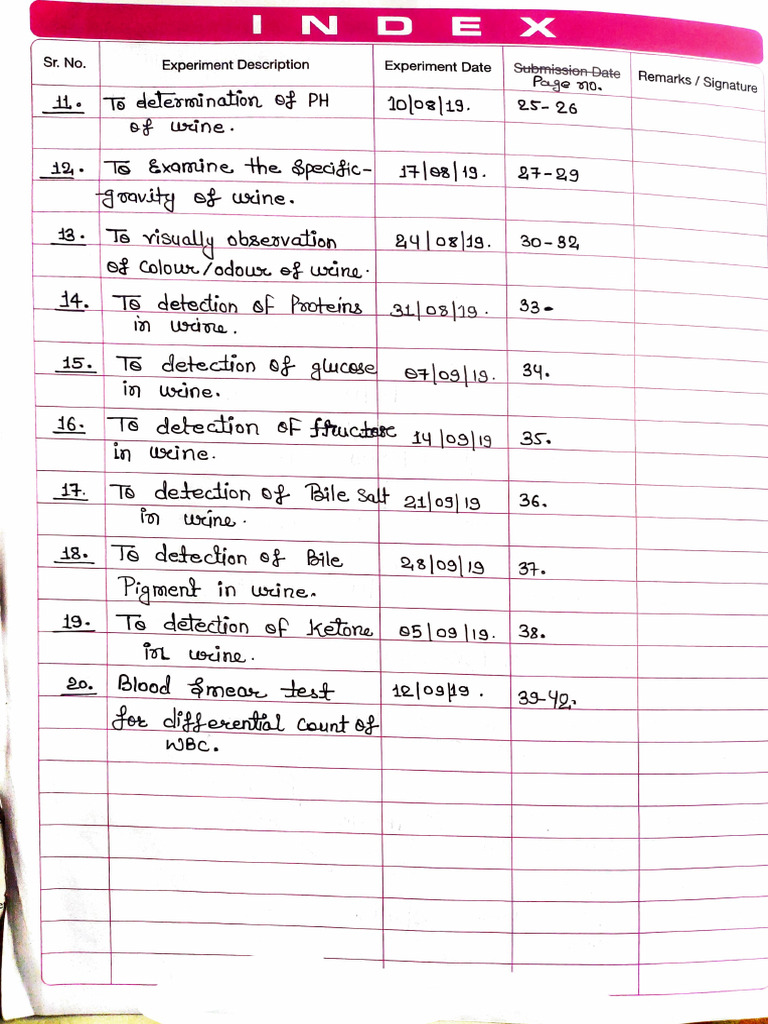 INDEX
Sr. No. Experiment Description Experiment Date Submission Date Remarks / Signature
Page no.
11. To determination of PH 10/08/19. 25-26
of urine.
12. To Examine the Specific- 17/08/19. 27-29
gravity of urine.
13. To visually observation 24/08/19. 30-32
of colour/odour of urine.
14. To detection of Proteins 31/08/19. 33-
in urine.
15. To detection of glucose 07/09/19. 34.
in urine.
16. To detection of fructose 14/09/19 35.
in urine.
17. To detection of Bile Salt 21/09/19 36.
in urine.
18. To detection of Bile 28/09/19 37.
Pigment in urine.
19. To detection of Ketone 05/09/19. 38.
in urine.
20. Blood Smear test 12/09/19. 39-42.
for differential count of
WBC.